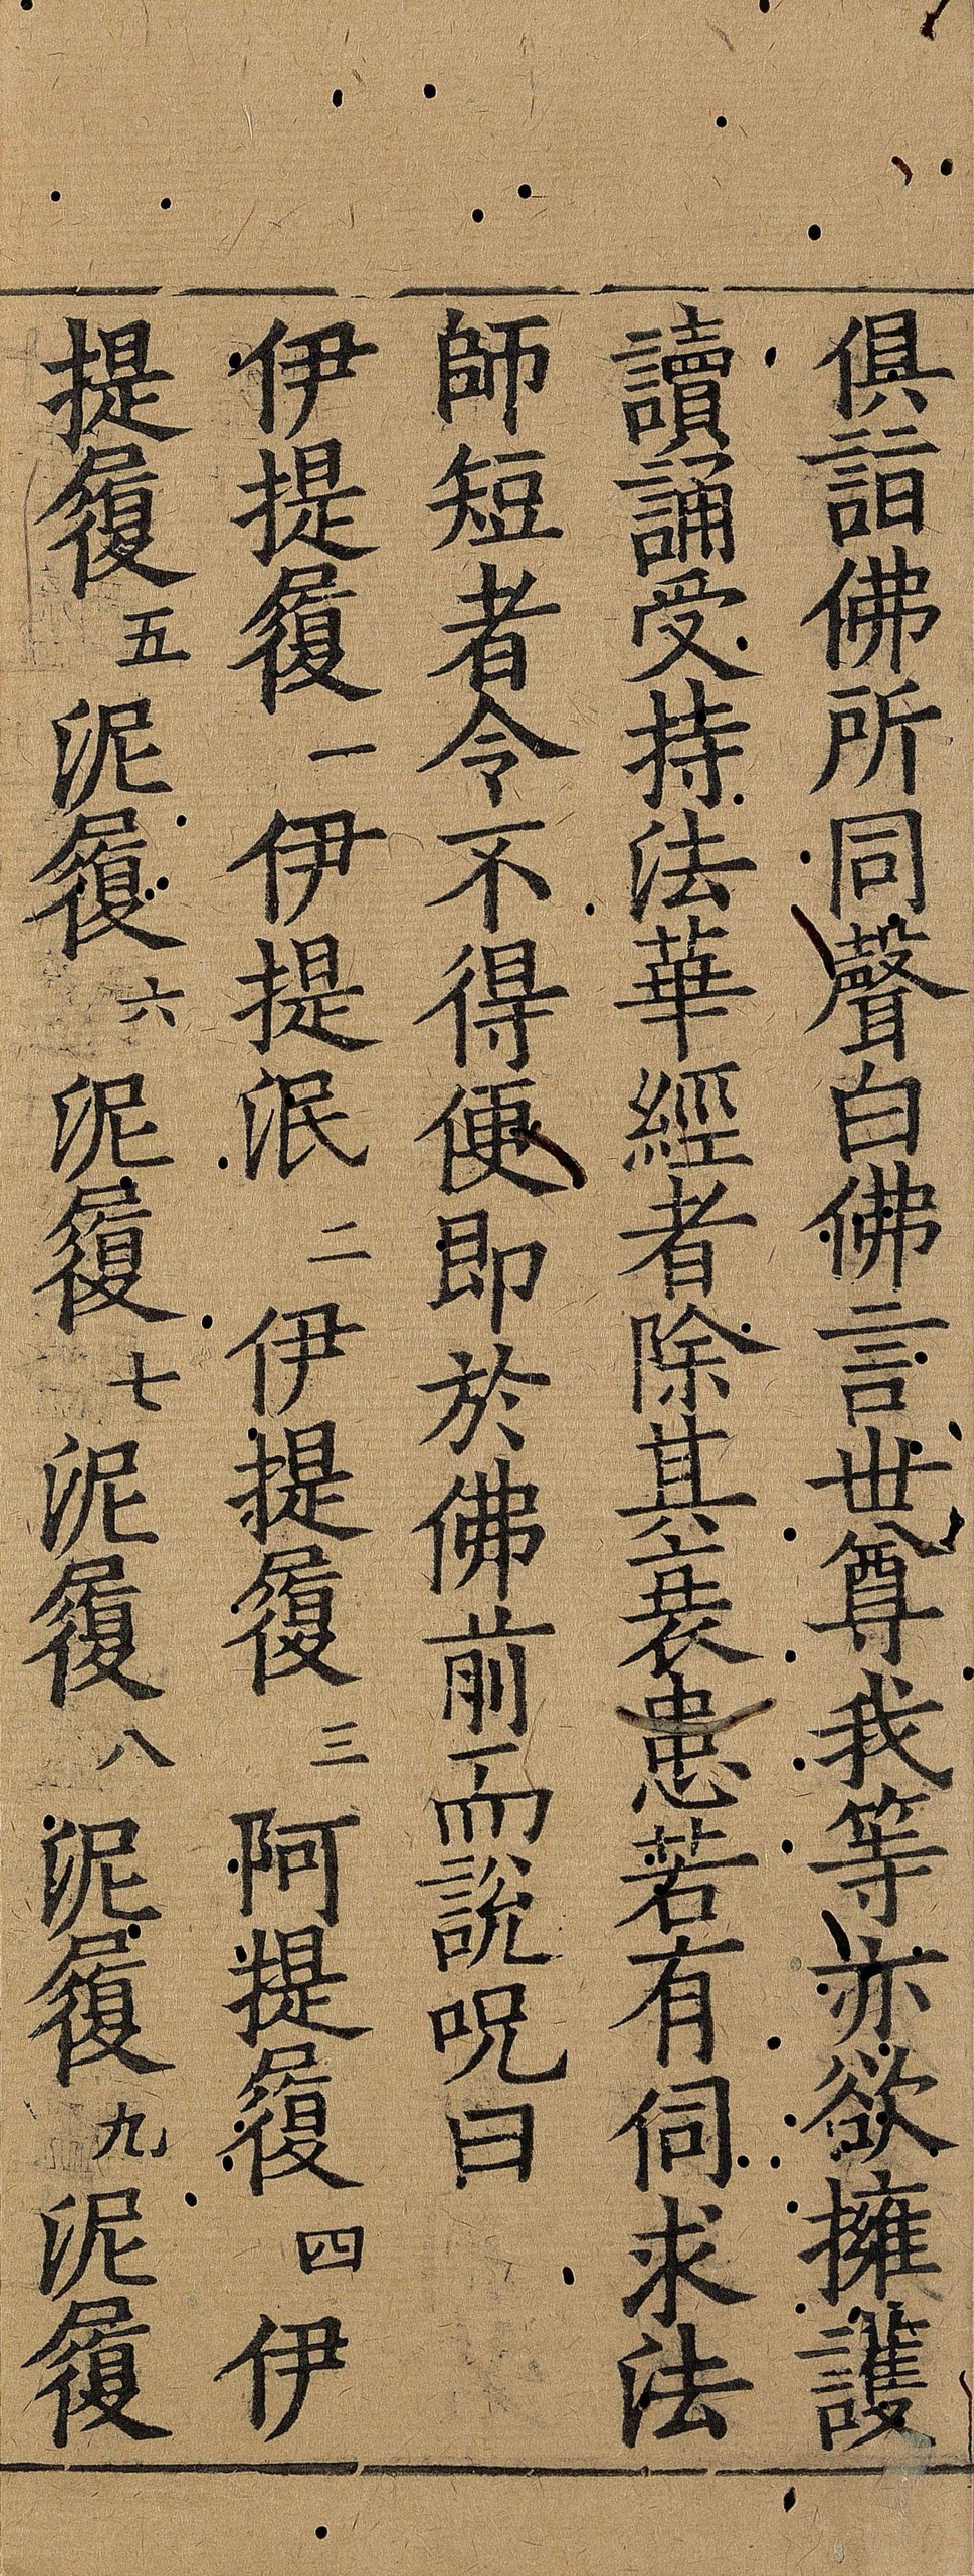 俱詣佛所同聲白佛言世尊我等亦欲擁護
讀誦受持法華經者除其衰患若有伺求法
師短者令不得便即於佛前而說呪曰
伊提履一伊提泯二伊提履三阿提履四伊
提履五泥履六泥履七泥履八泥履九泥履